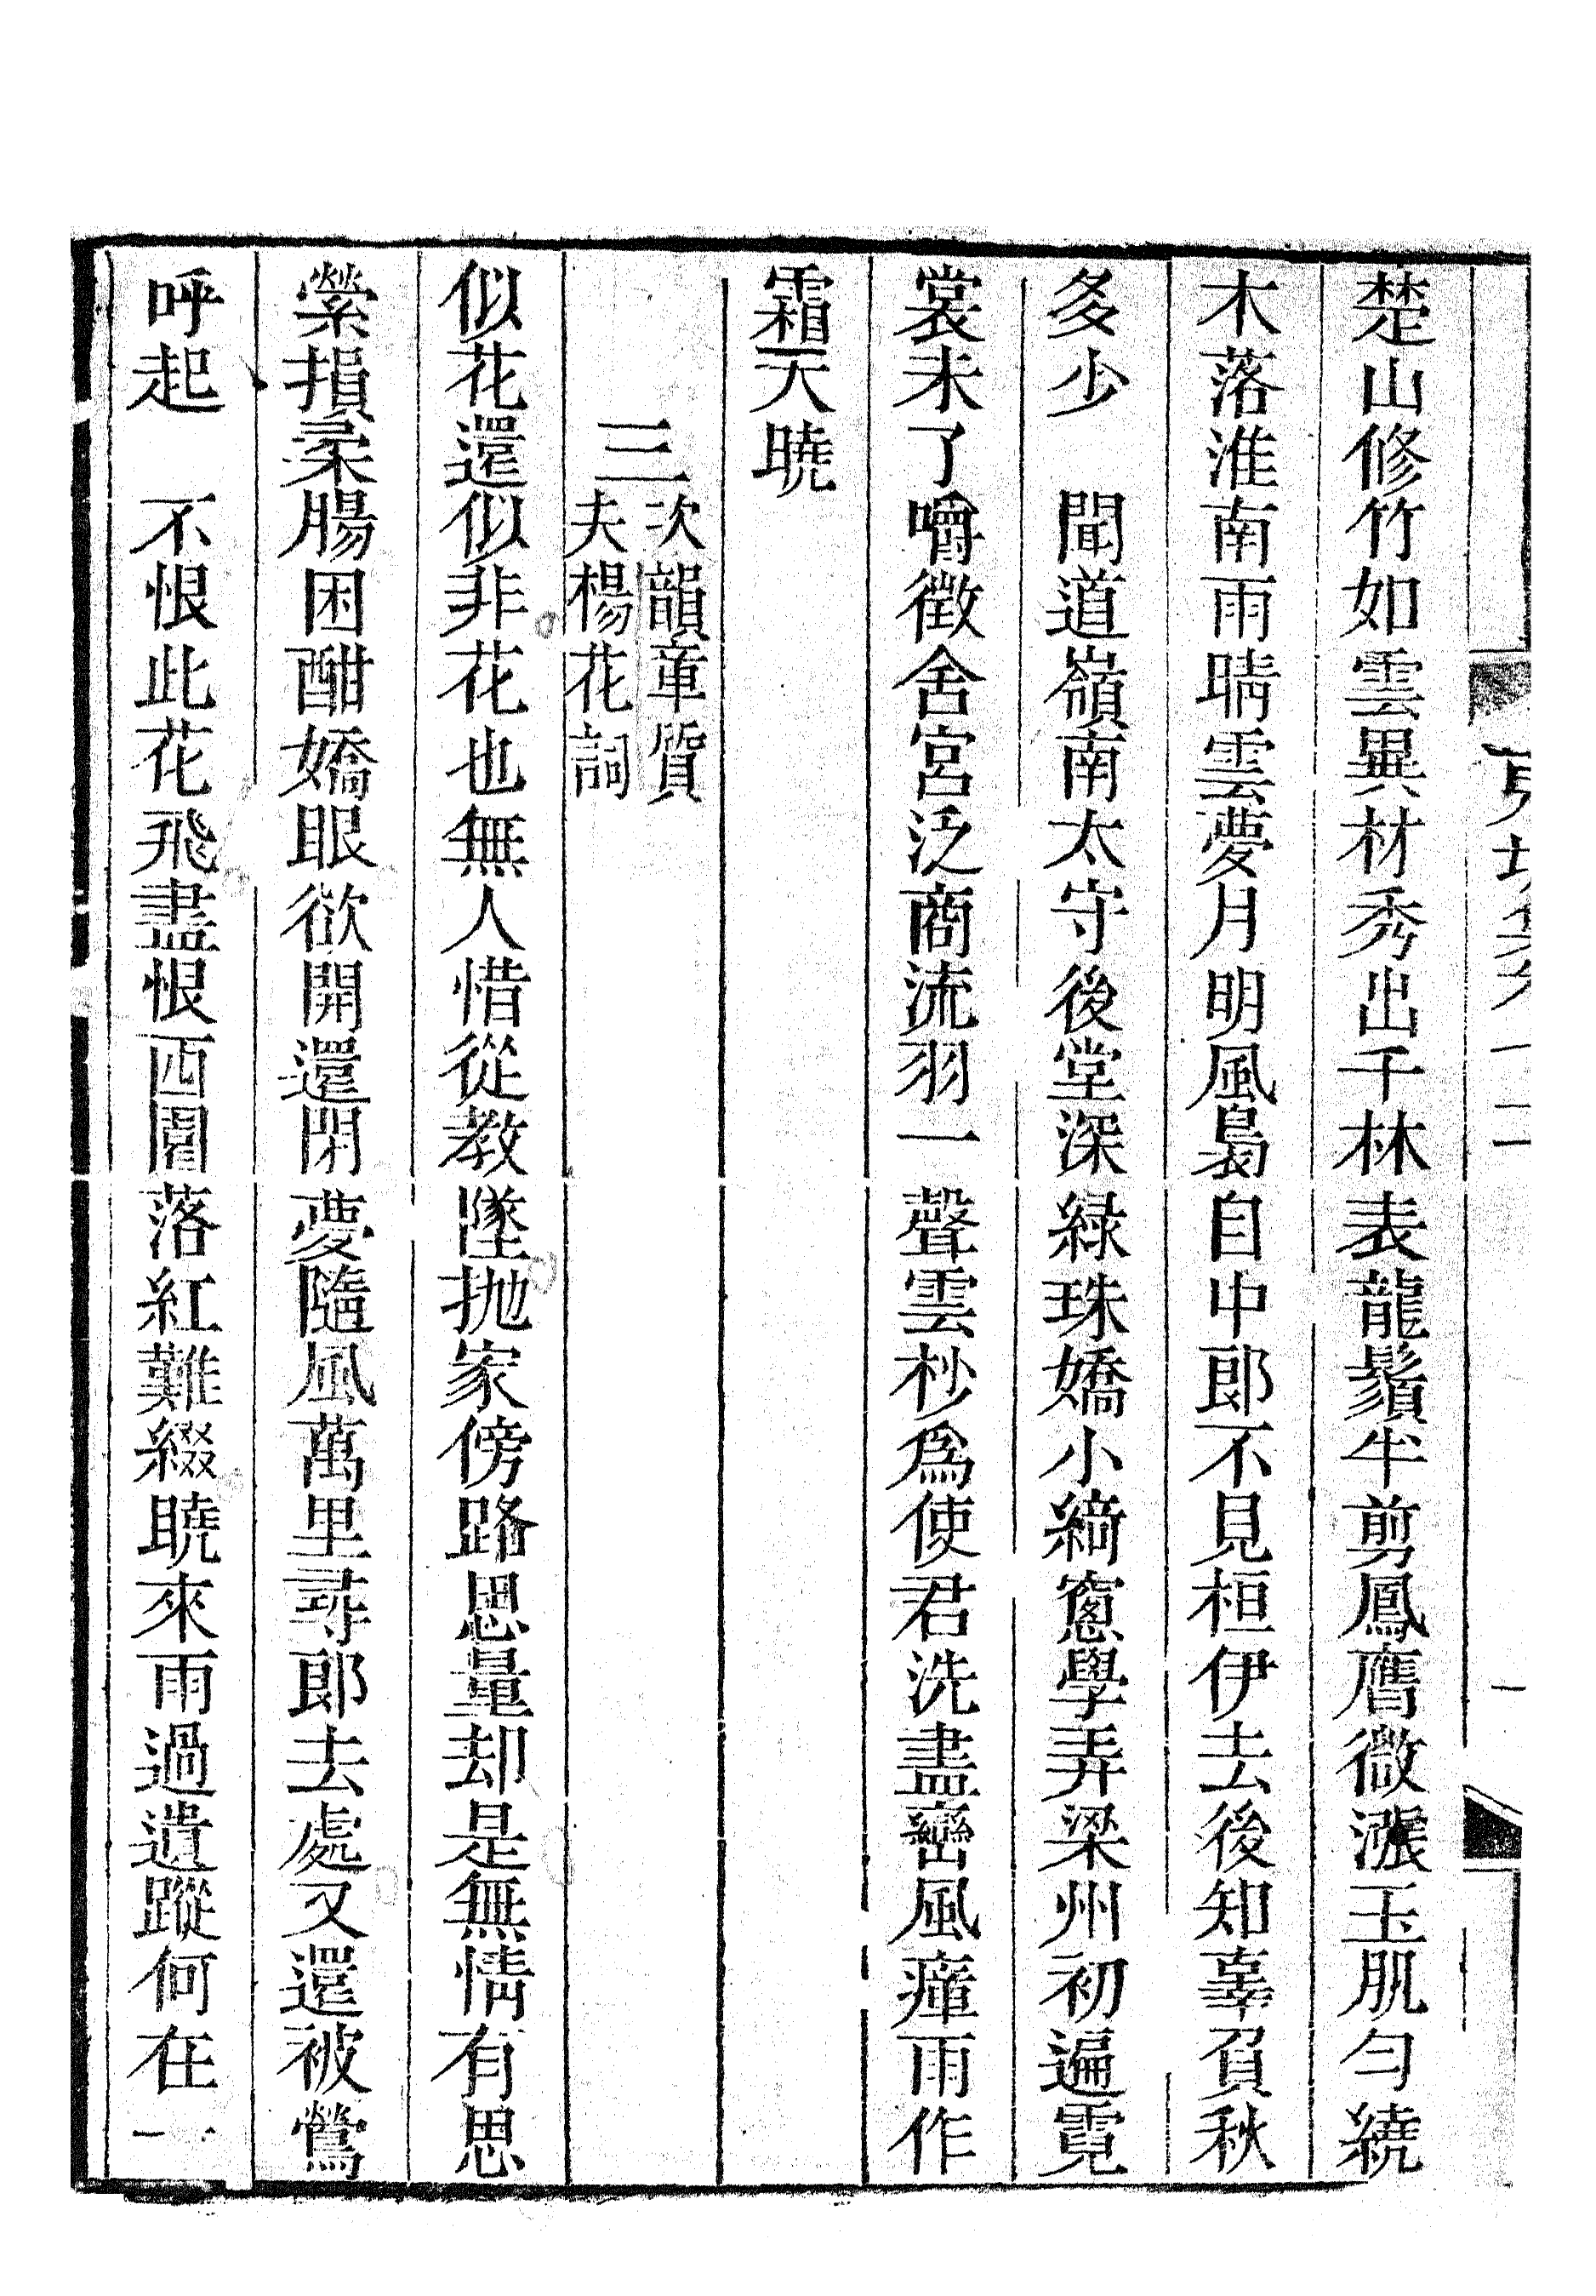 楚山修竹如雲異材秀出千林表龍鬚半剪鳳膺微漲玉肌勻繞
木落淮南雨晴雲夢月明風裊自中郎不見桓伊去後知辜負秋
多少　聞道嶺南太守後堂深綠珠嬌小綺窻學弄梁州初遍霓
裳未了嚼徵含宮泛商流羽一聲雲杪為使君洗盡蠻風瘴雨作
霜天曉
三次韻章質夫楊花詞
似花還似非花也無人惜從教墜拋家傍路思量却是無情有思
縈損柔腸困酣嬌眼欲開還閉夢隨風萬里尋郎去處又還被鶯
呼起　不恨此花飛盡恨西園落紅難綴曉來雨過遺蹤何在一